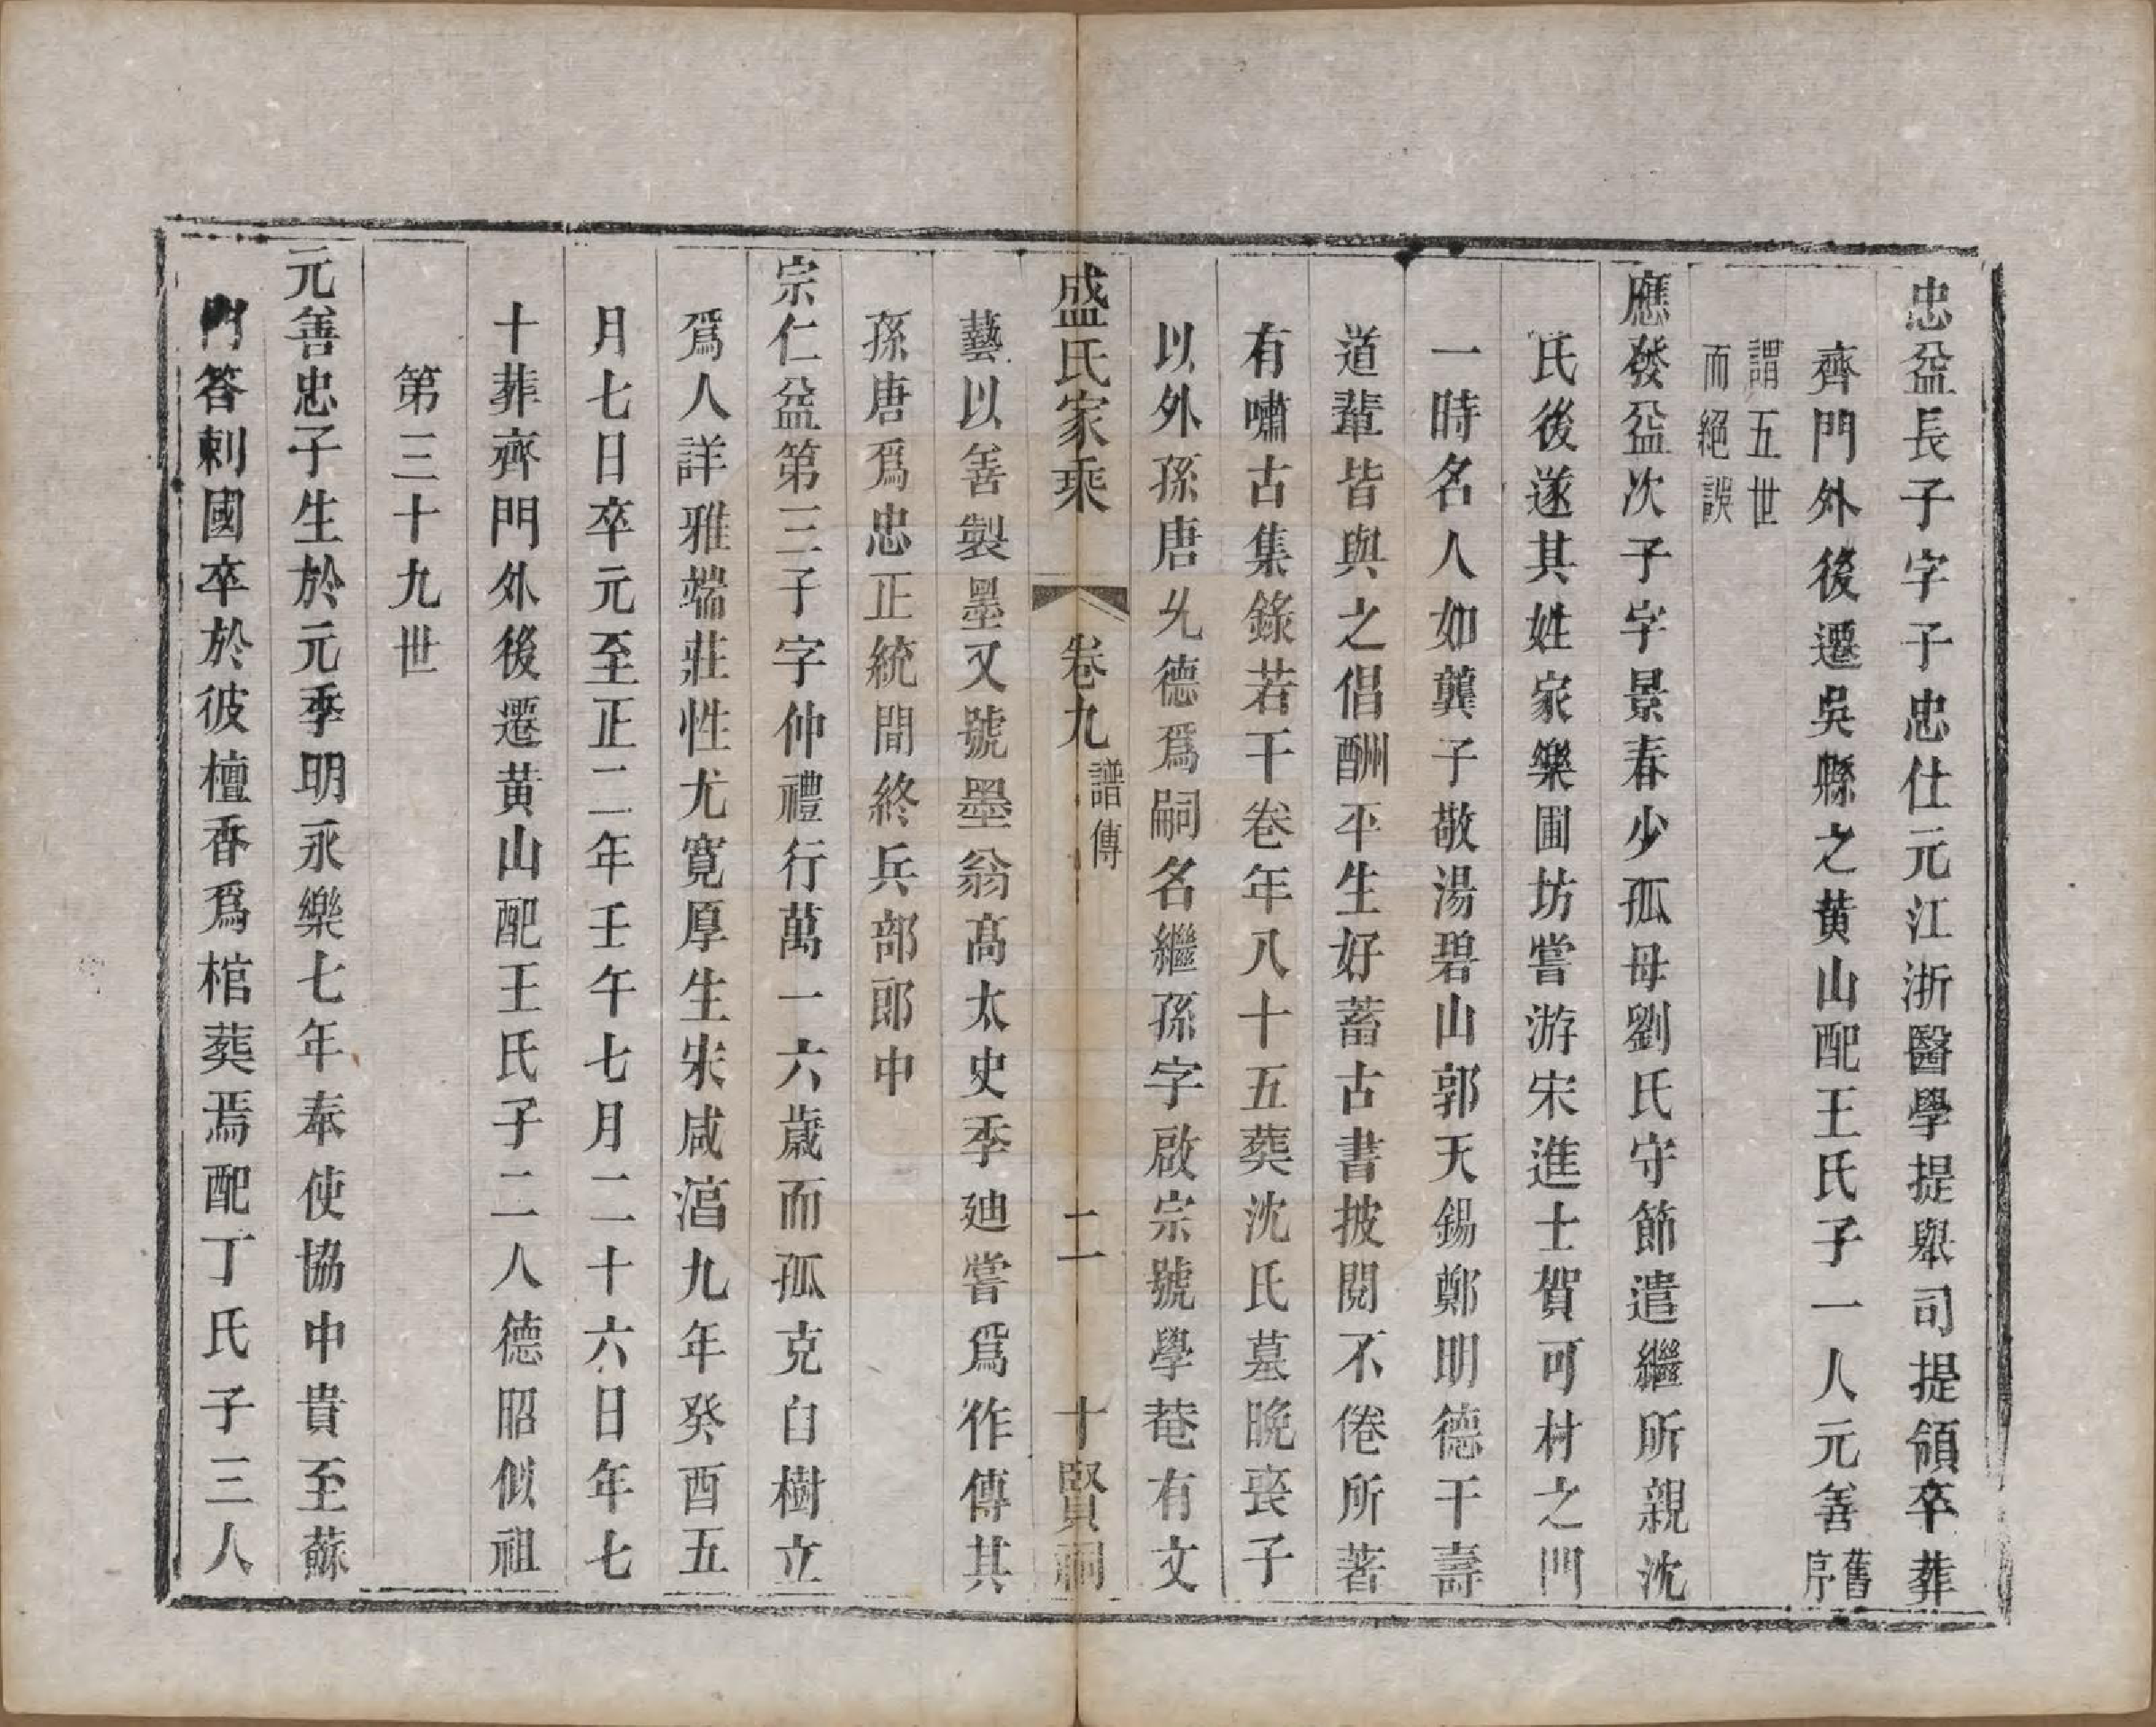 忠益長子字子忠仕元江浙醫學提舉司提領卒葬
齊門外後遷吳縣之黄山配王氏子一人元善舊序
謂五世而絕誤
應發益次子字景春少孤母劉氏守節遣繼所親沈
氏後遂其姓家樂圃坊嘗游宋進士賀可村之門
一時名人如龔子敬湯碧山郭天錫鄭明德干壽
道輩皆與之倡酬平生好蓄古書披閱不倦所著
有嘯古集錄若干卷年八十五葬沈氏墓晚喪子
以外孫唐允德爲嗣名繼孫字啟宗號學菴有文
盛氏家乘 卷九 譜傳 二 十賢祠
藝以善製墨又號墨翁高太史季迪嘗爲作傳其
孫唐爲忠正統間終兵部郎中
宗仁益第三子字仲禮行萬一六歲而孤克自樹立
爲人詳雅端莊性尤寬厚生宋咸淳九年癸酉五
月七日卒元至正二年壬午七月二十六日年七
十葬齊門外後遷黄山配王氏子二人德昭似祖
第三十九世
元善忠子生於元季明永樂七年奉使協中貴至蘇
門答剌國卒於彼檀香爲棺葬焉配丁氏子三人